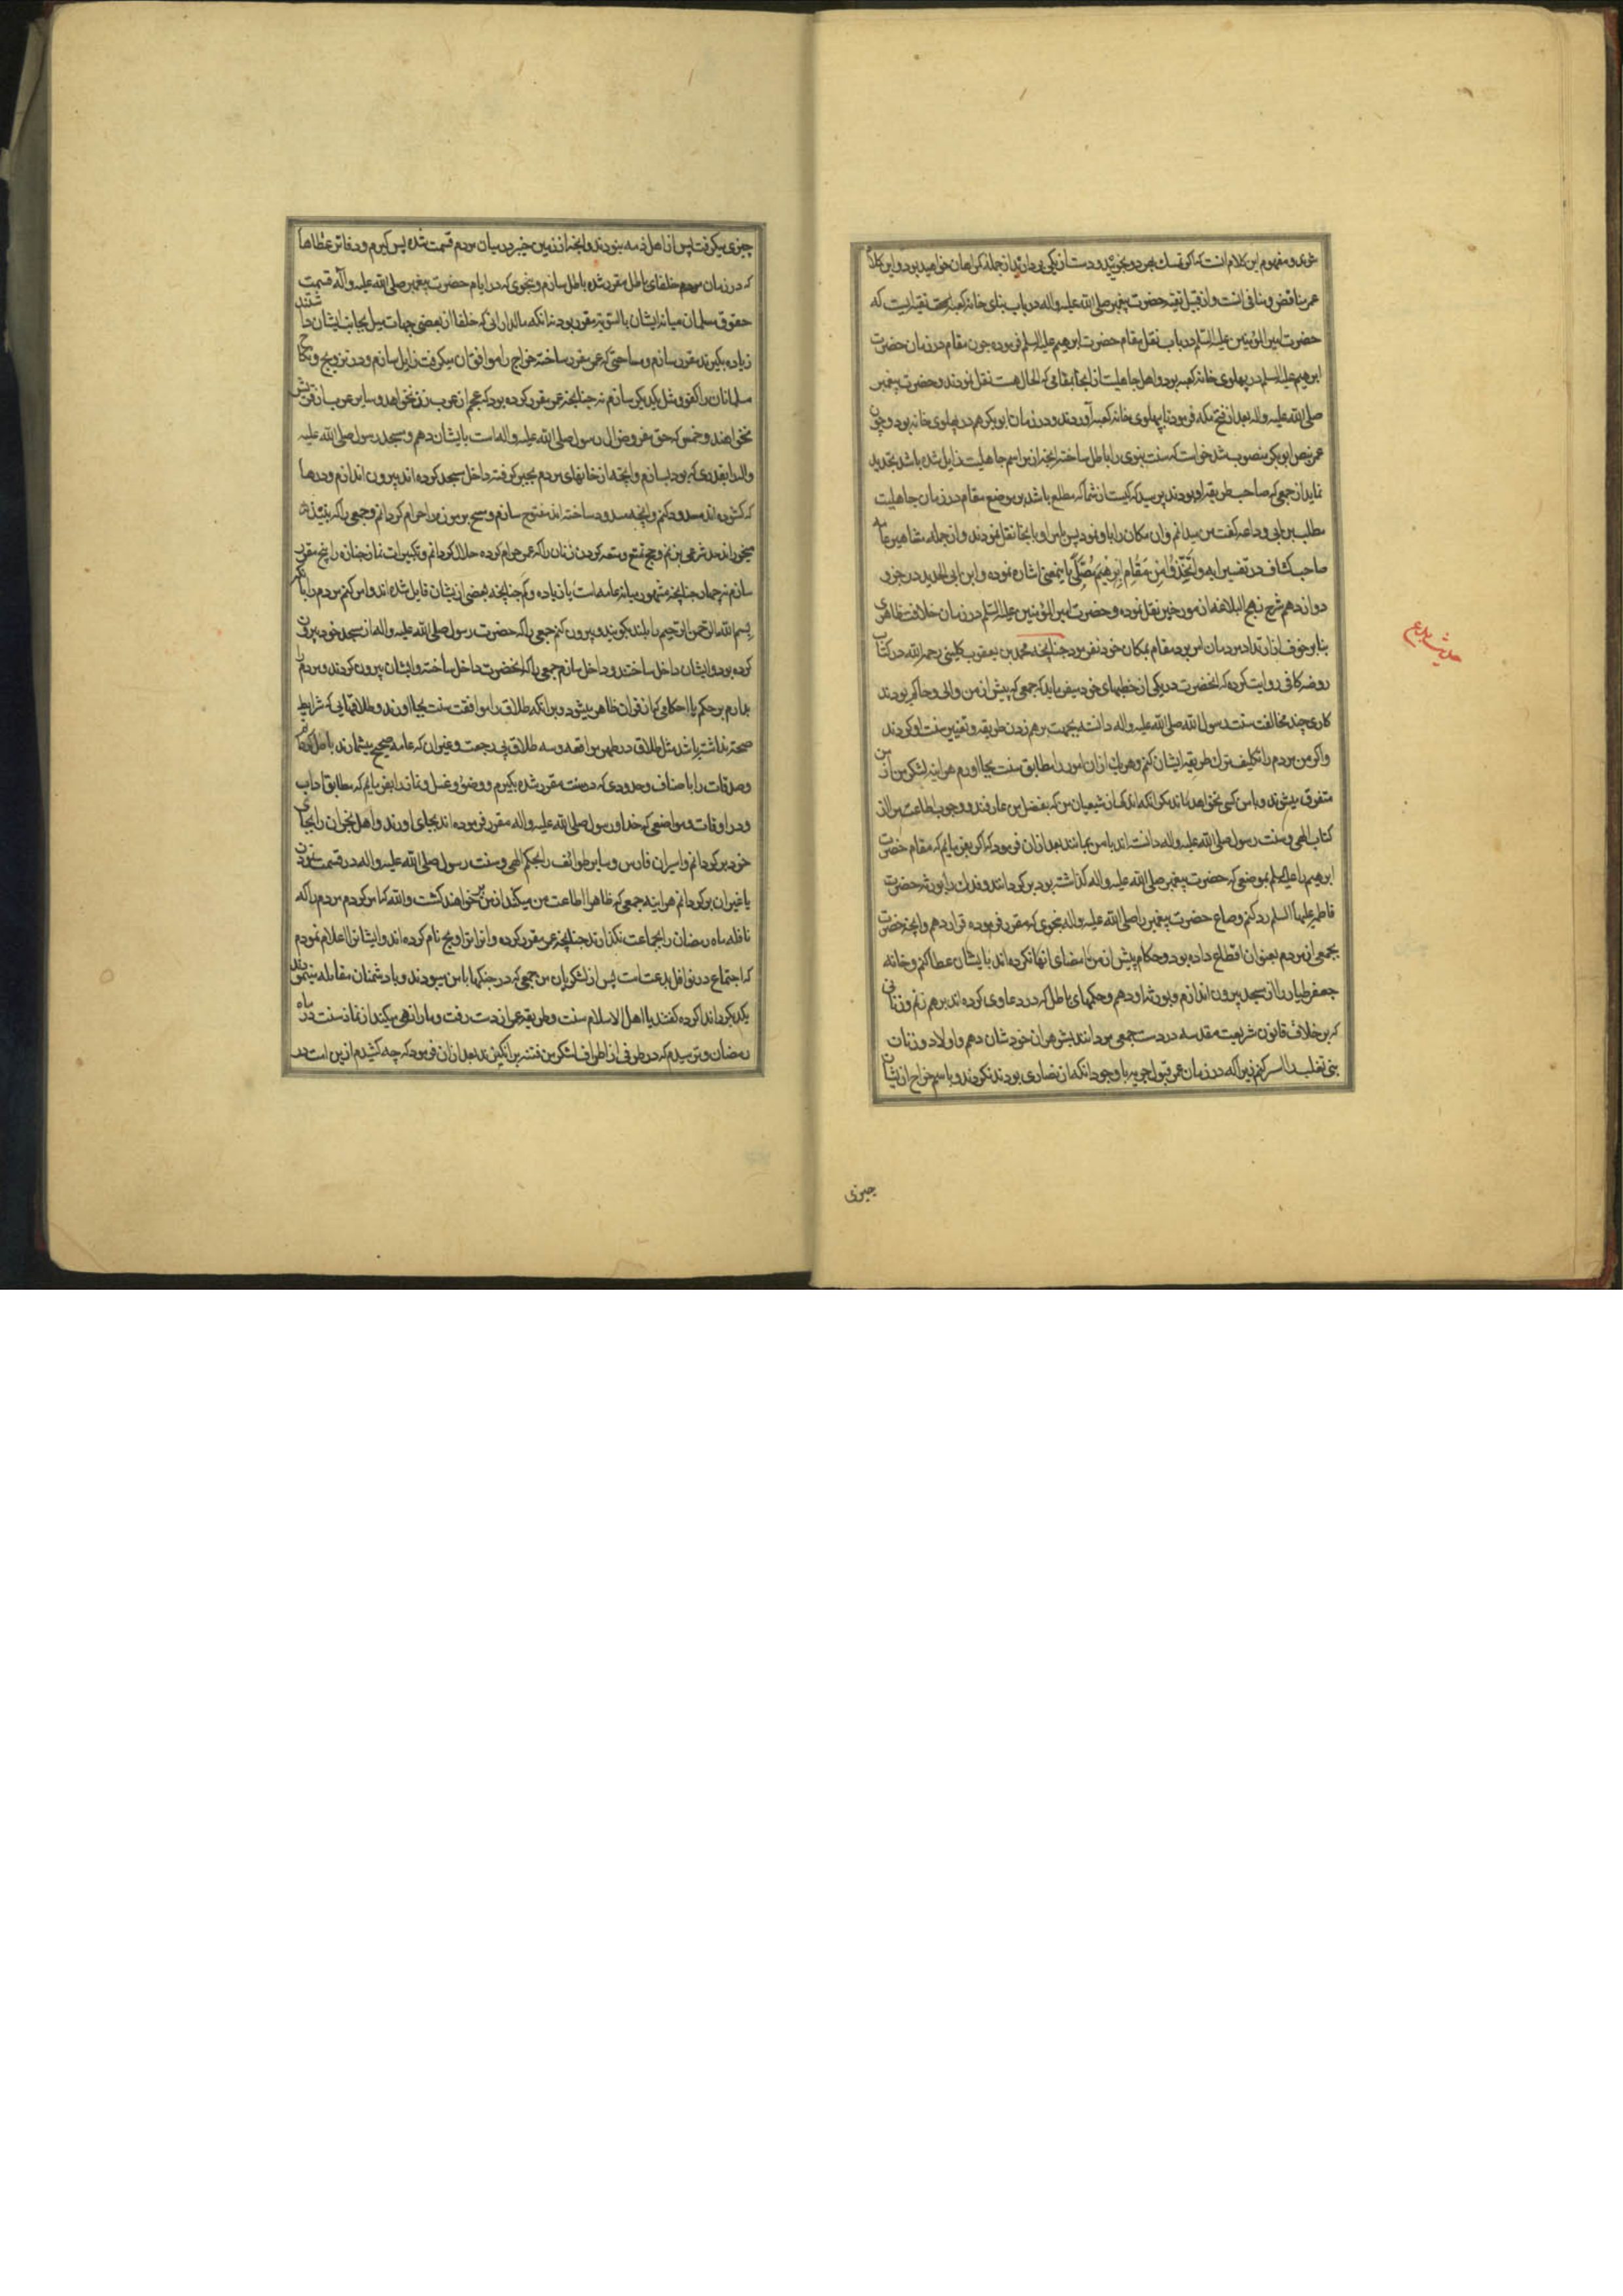 شوی و مفهوم این کلام انست که اکر تمسک بهر دو بجوئید و دست از یکی بردارید از جمله کمراهان خواهید بود و این کلام
عمر مناقض و منافی انست و از قبیل تقیه حضرت پیغمبر صلی الله علیه و اله در باب بنای خانه کعبه تقیه ایست که
حضرت امیر المؤمنین علیه السلم در باب نقل مقام حضرت ابرهیم علیه السلم فرموده چون مقام در زمان حضرت
ابرهیم علیه السلم در پهلوی خانه کعبه بود و اهل جاهلیت از انجا بمقامی که الحال هست نقل نمودند و حضرت پیغمبر
صلی الله علیه و اله بعد از فتح مکه فرمود تا پهلوی خانه کعبه آوردند و در زمان ابو بکر هم در پهلوی خانه بود و چون
عمر بنص ابو بکر منصوب شد خواست که سنت نبوی را باطل ساخته انچه از مراسم جاهلیت زایل شده باشد تجدید
نماید از جمعی که صاحب طریقه او بودند پرسید که کیست از شما که مطلع باشد بر موضع مقام در زمان جاهلیت
مطلب بن ابی وداعه کفت من میدانم و ان مکان را باو نمود پس بامر او بانجا نقل نمودند و از جمله مشاهیر عامه
صاحب کشاف در تفسیر ایه وَاتَّخِذُوا مِنْ مَقَامِ اِبْرٰهِیمَ مُصَلًّی باینمعنی اشاره نموده و ابن ابی الحدید در جزو
دوازدهم شرح نهج البلاغه از مورخین نقل نموده و حضرت امیر المؤمنین علیه السلم در زمان خلافت ظاهری
بنا بر خوف از ارتداد مردمان امر برد مقام بمکان خود نفرمود چنانچه محمد بن یعقوب کلینی رحمه الله در کتاب
روضه کافی روایت کرده که انحضرت در یکی از خطبهای خود میفرماید که جمعی که پیش از من والی و حاکم بودند
کاری چند مخالفت سنت رسول الله صلی الله علیه و اله دانسته بجهت برهم زدن طریقه و تغییر سنت او کردند
و اکر من مردم را تکلیف بترک طریقه ایشان کنم و هر یک از ان امور را مطابق سنت بجا اورم هر اینه لشکر من از من
متفرق میشوند و با من کسی نخواهد ماند مکر انکه اندکی از شیعیان من که بفضل من عارفند و وجوب اطاعت مرا از
کتاب الهی و سنت رسول صلی الله علیه و اله دانسته اند با من بمانند بعد از ان فرمود که اکر بفرمایم که مقام حضرت
ابرهیم را علیه السلم بموضعی که حضرت پیغمبر صلی الله علیه و اله کذاشته بود برکردانند و فدک را بورثه حضرت
فاطمه علیها السلم رد کنم و صاع حضرت پیغمبر را صلی الله علیه و اله بنحوی که مقرر فرموده قرار دهم و انچه حضرت
بجمعی از مردم بعنوان اقطاع داده بود و حکام پیش از من امضای انها نکرده اند بایشان عطا کنم و خانه
جعفر طیار را از مسجد بیرون اندازم و بورثه او دهم و حکمهای باطل که در دعاوی کرده اند برهم زنم و زنانی
که بر خلاف قانون شریعت مقدسه در دست جمعی مردانند بشوهران خودشان دهم و اولاد و زنان
بنی تغلب را اسر کنم زیرا که در زمان عمر قبول جزیه با وجود انکه از نصاری بودند نکردند و باسم خراج از ایشان
جیزی
چیزی میکرفت پس از اهل ذمه نبودند و انچه از زمین خیبر در میان مردم قسمت شده پس کیرم و دفاتر عطاها
که در زمان خلفای باطل مقرر شده باطل سازم و بنحوی که در ایام حضرت پیغمبر صلی الله علیه و آله قسمت
حقوق مسلمان میانه ایشان بالسویة مقرر بود نه انکه مالدارانی که خلفا از بعضی جهات میل بجانب ایشان داشتند
زیاده بکیرند مقرر سازم و مساحتی که عمر مقرر ساخته خراج را موافق ان میکرفت زایل سازم و در تزویج و نکاح
مسلمانان را کفو و مثل یکدیکر سازم نه چنانچه عمر مقرر کرده بود که عجم از عرب زن نخواهد و سایر عرب از قریش
نخواهند و خمس که حق مفروض ال رسول صلی الله علیه و اله است بایشان دهم و مسجد رسول صلی الله علیه
و اله را بقدری که بود بسازم و انچه از خانهای مردم بجبر کرفته داخل مسجد کرده اند بیرون اندازم و درها
که کشوده اند مسدود کنم و انچه مسدود ساخته اند مفتوح سازم و مسح بر موزه را حرام کردانم و جمعی را که نبیذ
میخورند حد شرعی بزنم و حج تمتع و متعه کردن زنان را که عمر حرام کرده حلال کردانم و تکبیرات نماز جنازه را پنج مقرر
سازم نه چهار چنانچه مشهور میانه عامه است یا زیاده و کم چنانچه بعضی از ایشان قایل شده اند و امر کنم مردم را بانکه
بسم الله الرحمن الرحیم را بلند بکویند و بیرون کنم جمعی را که حضرت رسول صلی الله علیه و اله از مسجد خود بیرون
کرده بود و ایشان داخل ساختند و داخل سازم جمعی را که انحضرت داخل ساخته و ایشان بیرون کردند و مردم را
بدارم بر حکم یا احکامی که از قران ظاهر میشود و بر انکه طلاق را موافقت سنت بجا اورند و طلاقهایی که شرایط
صحة نداشته باشد مثل طلاق در طهر مواقعه و سه طلاق بی رجعت و غیر ان که عامه صحیح میشمارند باطل کردانم
و صدقات را با صناف و حدودی که در سنت مقرر شده بکیرم و وضوء و غسل و نماز را بفرمایم که مطابق اداب
و در اوقات و مواضعی که خدا و رسول صلی الله علیه و اله مقرر فرموده اند بجای اورند و اهل نجران را بجای
خود برکردانم و اسیران فارس و سایر طوائف را بحکم الهی و سنت رسول صلی الله علیه و اله در قسمت نمودن
یا غیر ان برکردانم هر اینه جمعی که ظاهرا اطاعت من میکنند از من برخواهند کشت و الله که امر کردم مردم را که
نافله ماه رمضان را بجماعت نکذارند چنانچه عمر مقرر کرده و انرا تراویح نام کرده اند و ایشانرا اعلام نمودم
که اجتماع در نوافل بدعت است پس از لشکریان من جمعی که در جنکها با من میبودند و با دشمنان مقابله مینمودند
یکدیکر را ندا کرده کفتند یا اهل الاسلام سنت و طریقه عمر از دست رفت و ما را نهی میکند از نماز سنت در ماه
رمضان و ترسیدم که در طرفی از اطراف لشکر من فتنه برانکیزند بعد از ان فرمود که چه کشیدم از این امت در